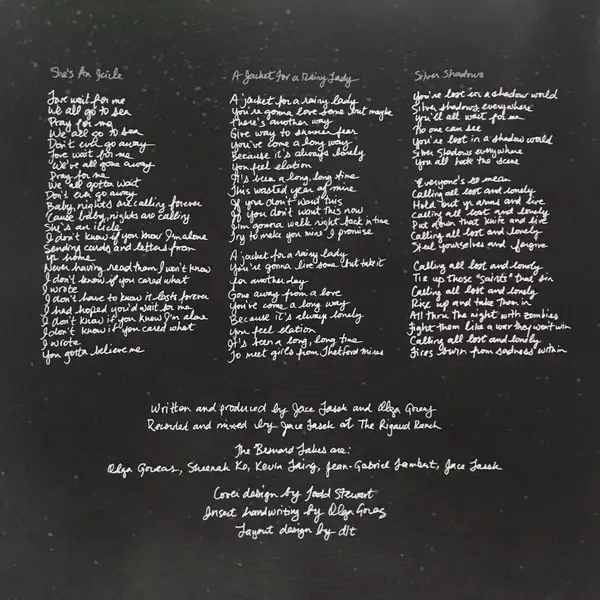 She's An Icicle
Love wait for me
We all go to sea
Pray for me
We all go to sea
Don't ever go away
Love wait for me
We've all gone away
Pray for me
We all gotta wait
Don't ever go away
Baby, nights are calling forever
Cause baby, nights are calling
She's an icicle
I don't know if you know I'm alone
Sending cards and letters from
yr home
Never having read them I won't know
I don't know if you cared what
I wrote
I don't have to know it lasts forever
I had hoped you'd wait for me
I don't know if you know I'm alone
I don't know if you cared what
I wrote
You gotta believe me
A Jacket For a Rainy Lady
A jacket for a rainy lady
You're gonna love some but maybe
There's another way
Give way to summer fear
You've come a long way
Because it's always lonely
You feel elation
It's been a long, long time
This wasted year of mine
If you don't want this
So you don't want this now
I'm gonna walk right back in time
Try to make you mine I promise
A jacket for a rainy lady
You're gonna live some but take it
for another day
Gone away from a love
You've come a long way
Because it's always lonely
You feel elation
It's been a long, long time
To meet girls from Thetford Mines
Silver Shadows
You're lost in a shadow world
Silver shadows everywhere
You'll all wait for me
No one can see
You're lost in a shadow world
Silver shadows everywhere
You all hate the scene
Everyone's so mean
Calling all lost and lonely
Hold out yr arms and live
Calling all lost and lonely
Put down that knife and
Calling all lost and lonely
Steel yourselves and forgive
Calling all lost and lonely
Tie up those "saints" that sin
Calling all lost and lonely
Rise up and take them in
All thru the night with zombies
Fight them like a war they won't win
Calling all lost and lonely
Fires burn from sadness within
Written and produced by Jace Lasek and Olga Goreas
Recorded and mixed by Jace Lasek at The Rigaud Ranch
The Besnard Lakes are:
Olga Goreas, Sheenah Ko, Kevin Laing, Jean-Gabriel Lambert, Jace Lasek
Cover design by Todd Stewart
Insert handwriting by Olga Goreas
Layout design by d/t